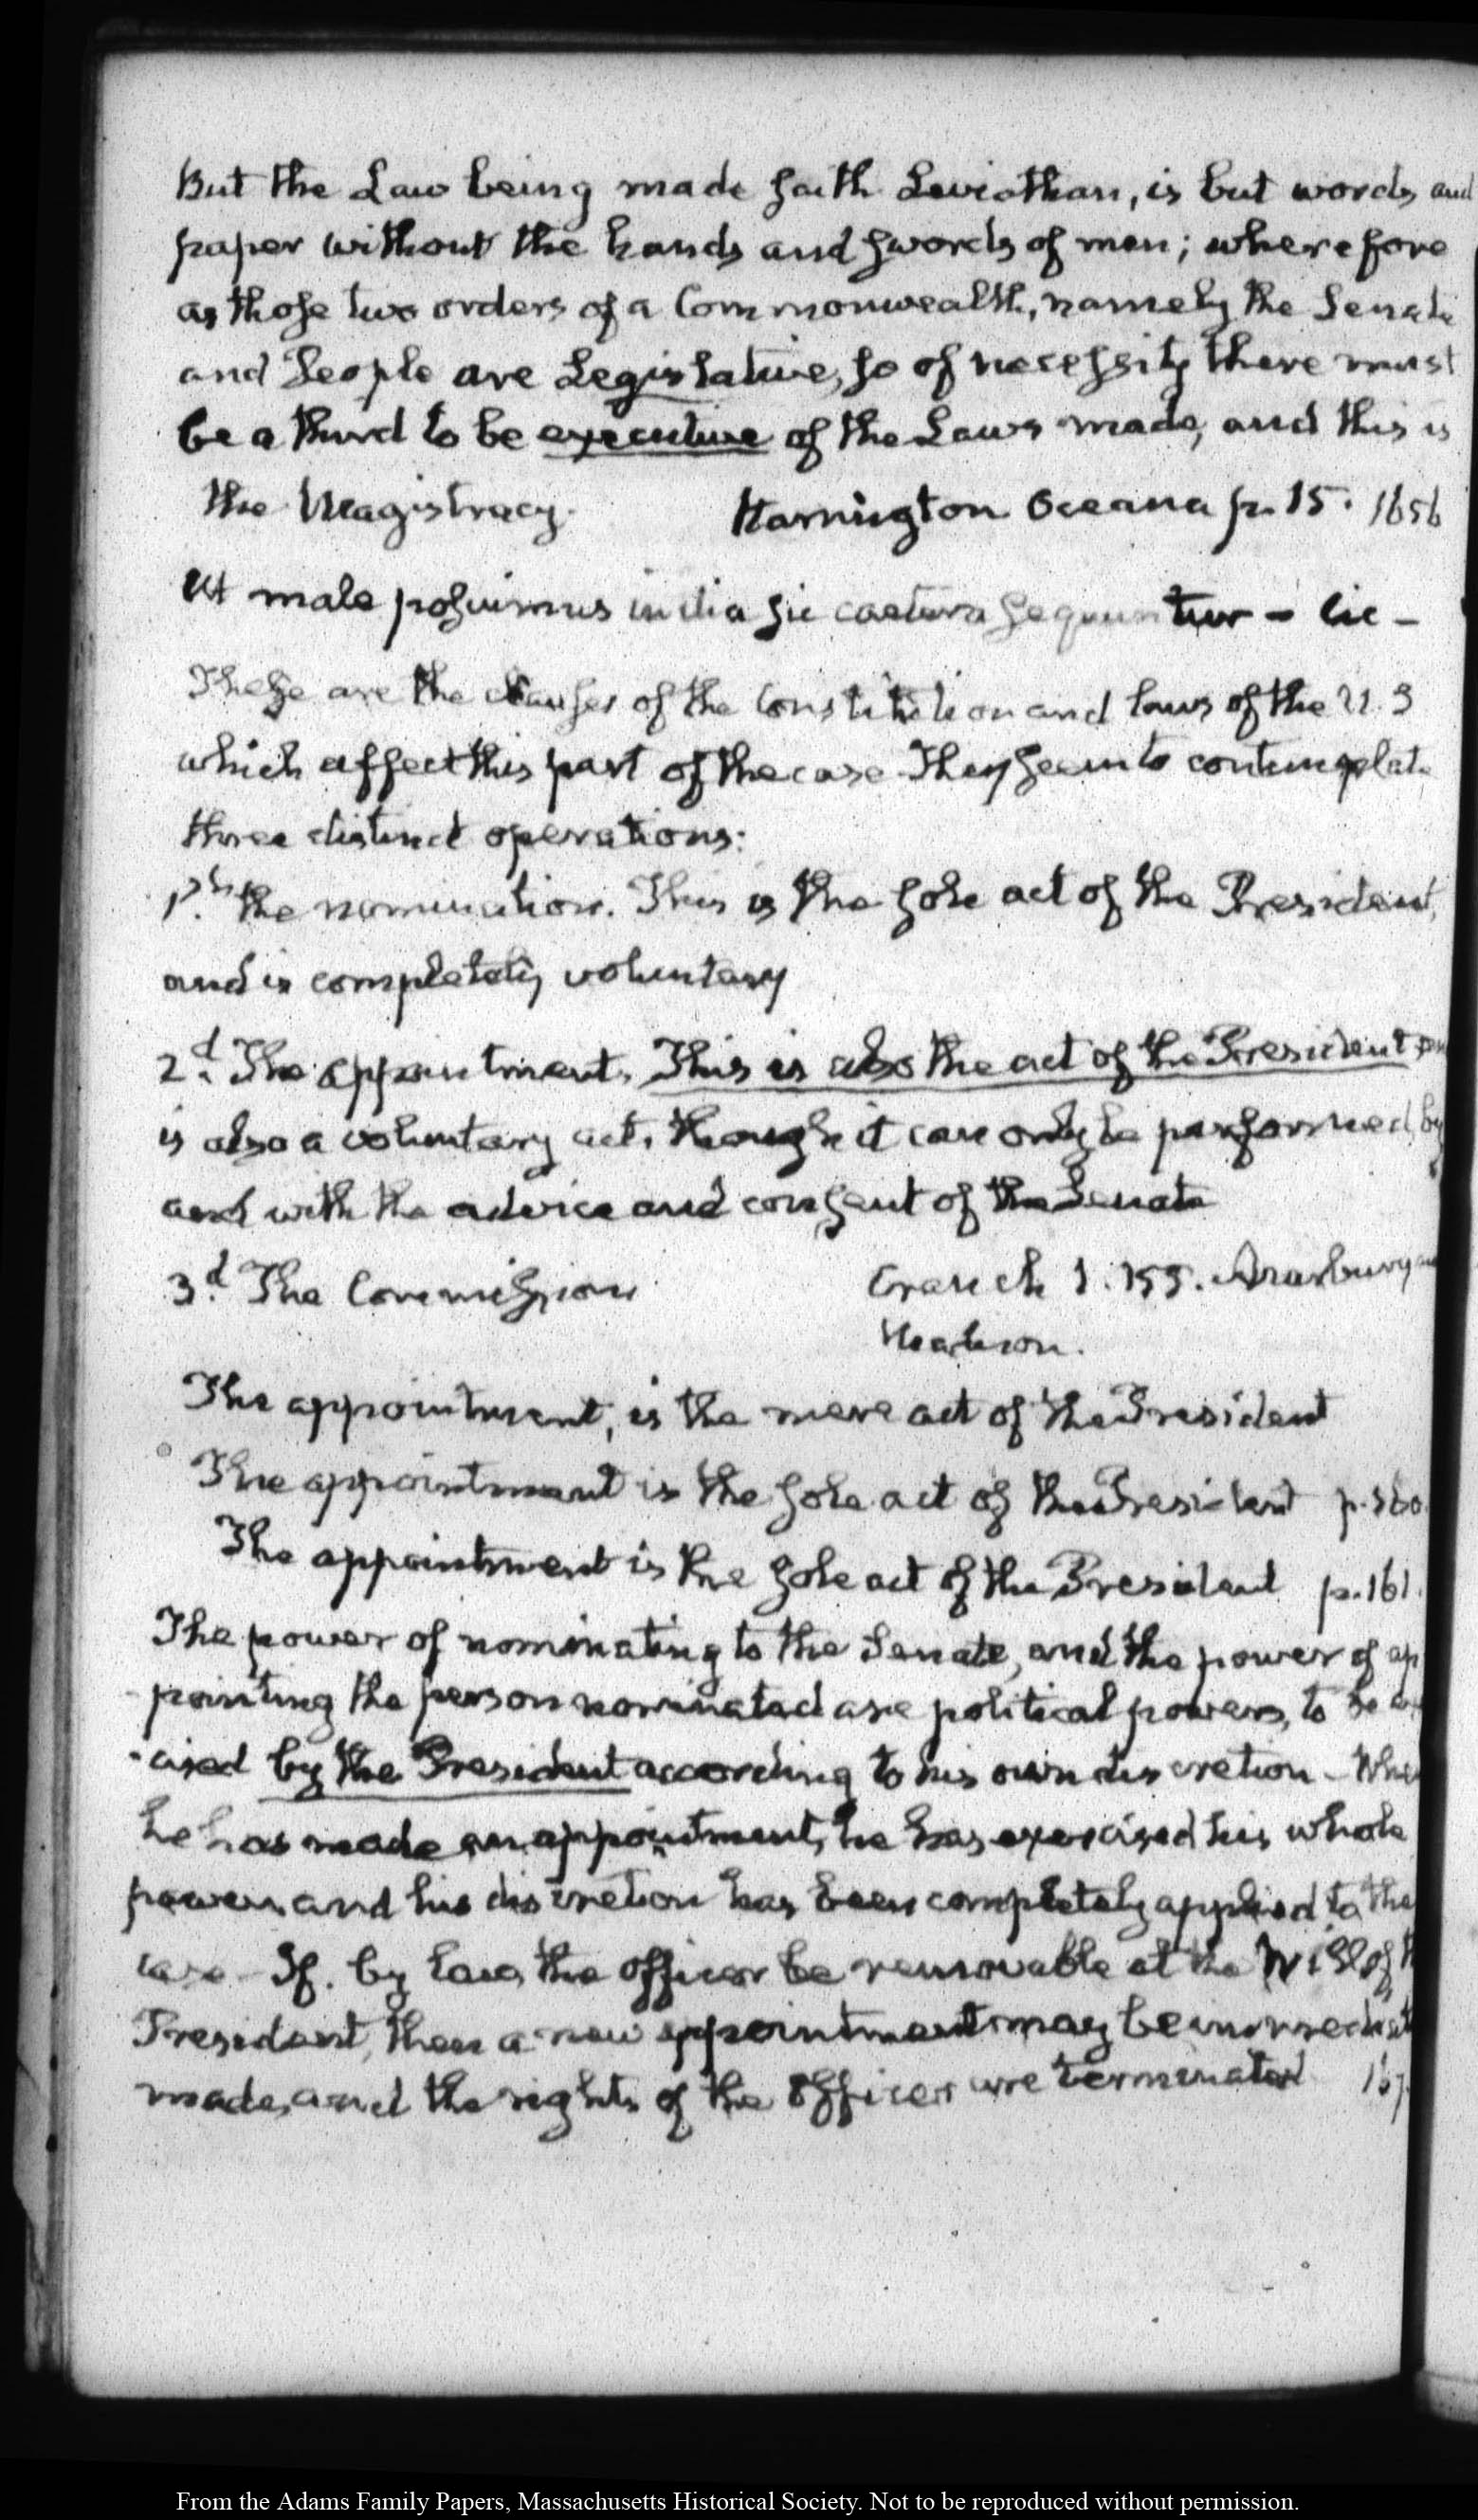 But the Law being made saith Leviathan, is but words and
paper without the hands and swords of men; wherefore
as those two orders of a Commonwealth, namely the Senate
and People are Legislative, so of necessity there must
be a third to be executive of the Laws made, and this is
the Magistracy. Harrington Oceana p. 15. 1656
Ut male posuimus initia sic caetera sequuntur – Cic –
These are the clauses of the Constitution and laws of the U.S
which affect this part of the case They seem to contemplate
three distinct operations:
the nomination. This is the sole act of the President,
and is completely voluntary
2.d The appointment. This is also the act of the President and
is also a voluntary act, though it can only be performed by
and with the advice and consent of the Senate
3.d The Commission Cranch 1. 155. Marbury and
Madison.
The appointment, is the mere act of the President
The appointment is the sole act of the President p.
The appointment is the sole act of the President p. 161.
The power of nominating to the Senate, and the power of ap
pointing the person nominated are political powers, to be
cised by the President according to his own discretion – When
he has made an appointment, he has exercised his whole
power, and his discretion has been completely applied to the
case – If. by law, the officer be removable at the Will of
President, then a new appointment may be immediat
made, and the rights of the Officer are terminated
From the Adams Family Papers, Massachusetts Historical Society. Not to be reproduced without permission.